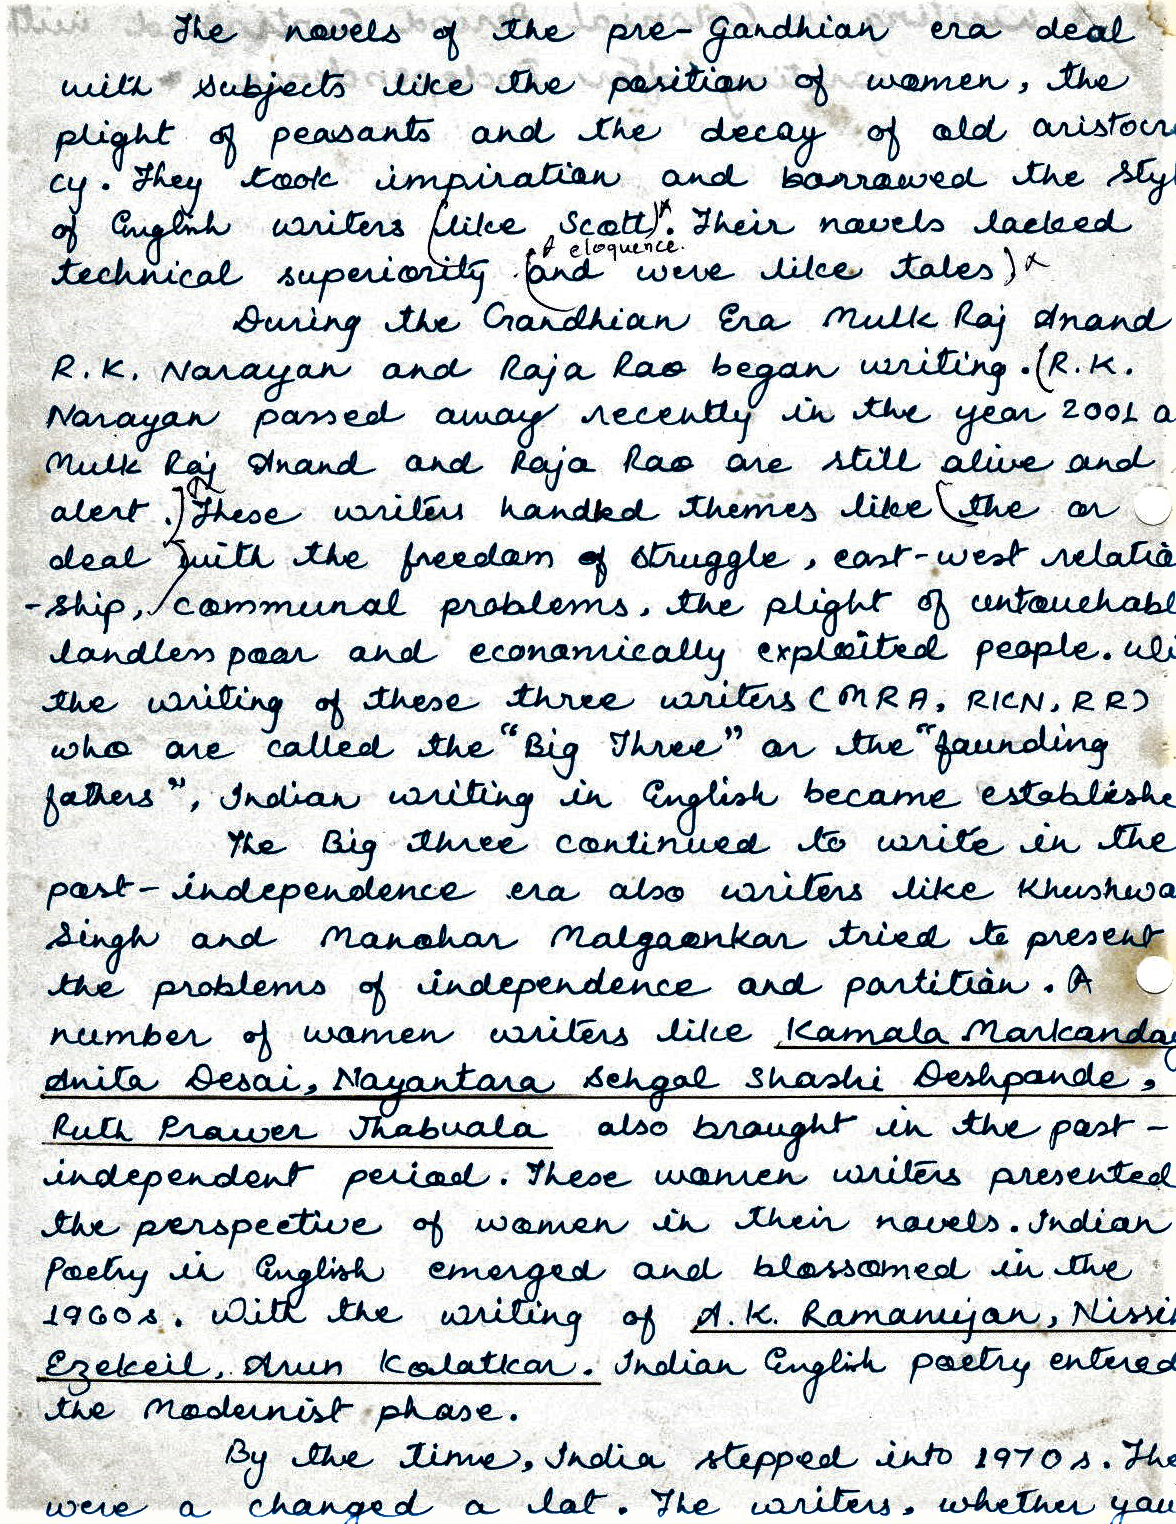 The novels of the pre-Gandhian era deal
with subjects like the position of women, the
plight of peasants and the decay of old aristocr
cy. They took impiration and borrowed the sty
of English writers (like Scott)x. Their novels lacked
& eloquence.
technical superiority (and were like tales)x
During the Gandhian Era Mulk Raj Anand
R.K. Narayan and Raja Rao began writing. (R.K.
Narayan passed away recently in the year 2001 a
Mulk Raj Anand and Raja Rao are still alive and
alert.) These writers handled themes like (the or
deal with the freedom of struggle, east-west relatio
-ship, communal problems, the plight of untouchabl
landless poor and economically exploited people.
the writing of these three writers (MRA, RKN, RR)
who are called the "Big Three" or the "founding
fathers", Indian writing in English became establishe
The Big three continued to write in the
post-independence era also writers like Khushwa
Singh and Manohar Malgaonkar tried to present
the problems of independence and partition. A
number of women writers like Kamala Markanda
Anita Desai, Nayantara Sehgal Shashi Deshpande,
Ruth Prawer Jhabuala also brought in the post-
independent period. These women writers presented
the perspective of women in their novels. Indian
Poetry in English emerged and blossomed in the
1960s. With the writing of A.K. Ramanujan, Nissi
Ezekeil, Arun Kolatkar. Indian English poetry entered
the Modernist phase.
By the time, India stepped into 1970s. The
were a changed a lot. The writers, whether you